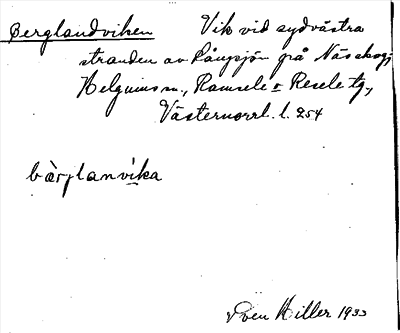 Berglandviken Vik vid sydvästra
stranden av Långsjön på Näsakogj
Helgums sn., Ramsele o Resele tg.,
Västernorrl. l. 254
bàrjlanvika
Sven Hiller 1933